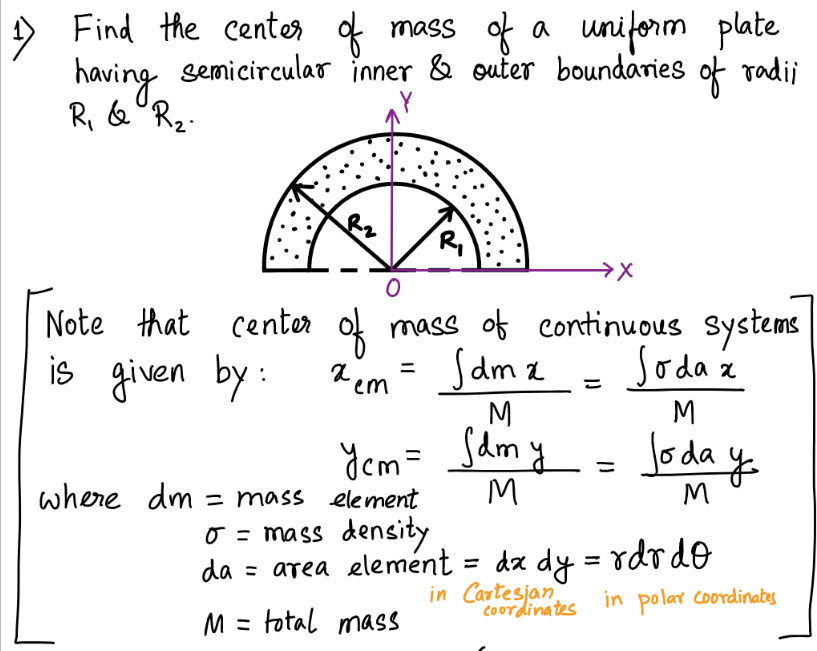 1) Find the center of mass of a uniform plate
having semicircular inner & outer boundaries of radii
R₁ & R₂.
Y
R₂
R₁
X
O
Note that center of mass of continuous systems
is given by : x_cm = ∫dm x / M = ∫σ da x / M
y_cm = ∫dm y / M = ∫σ da y / M
where dm = mass element
σ = mass density
da = area element = dx dy = rdrdθ
in Cartesian coordinates in polar coordinates
M = total mass